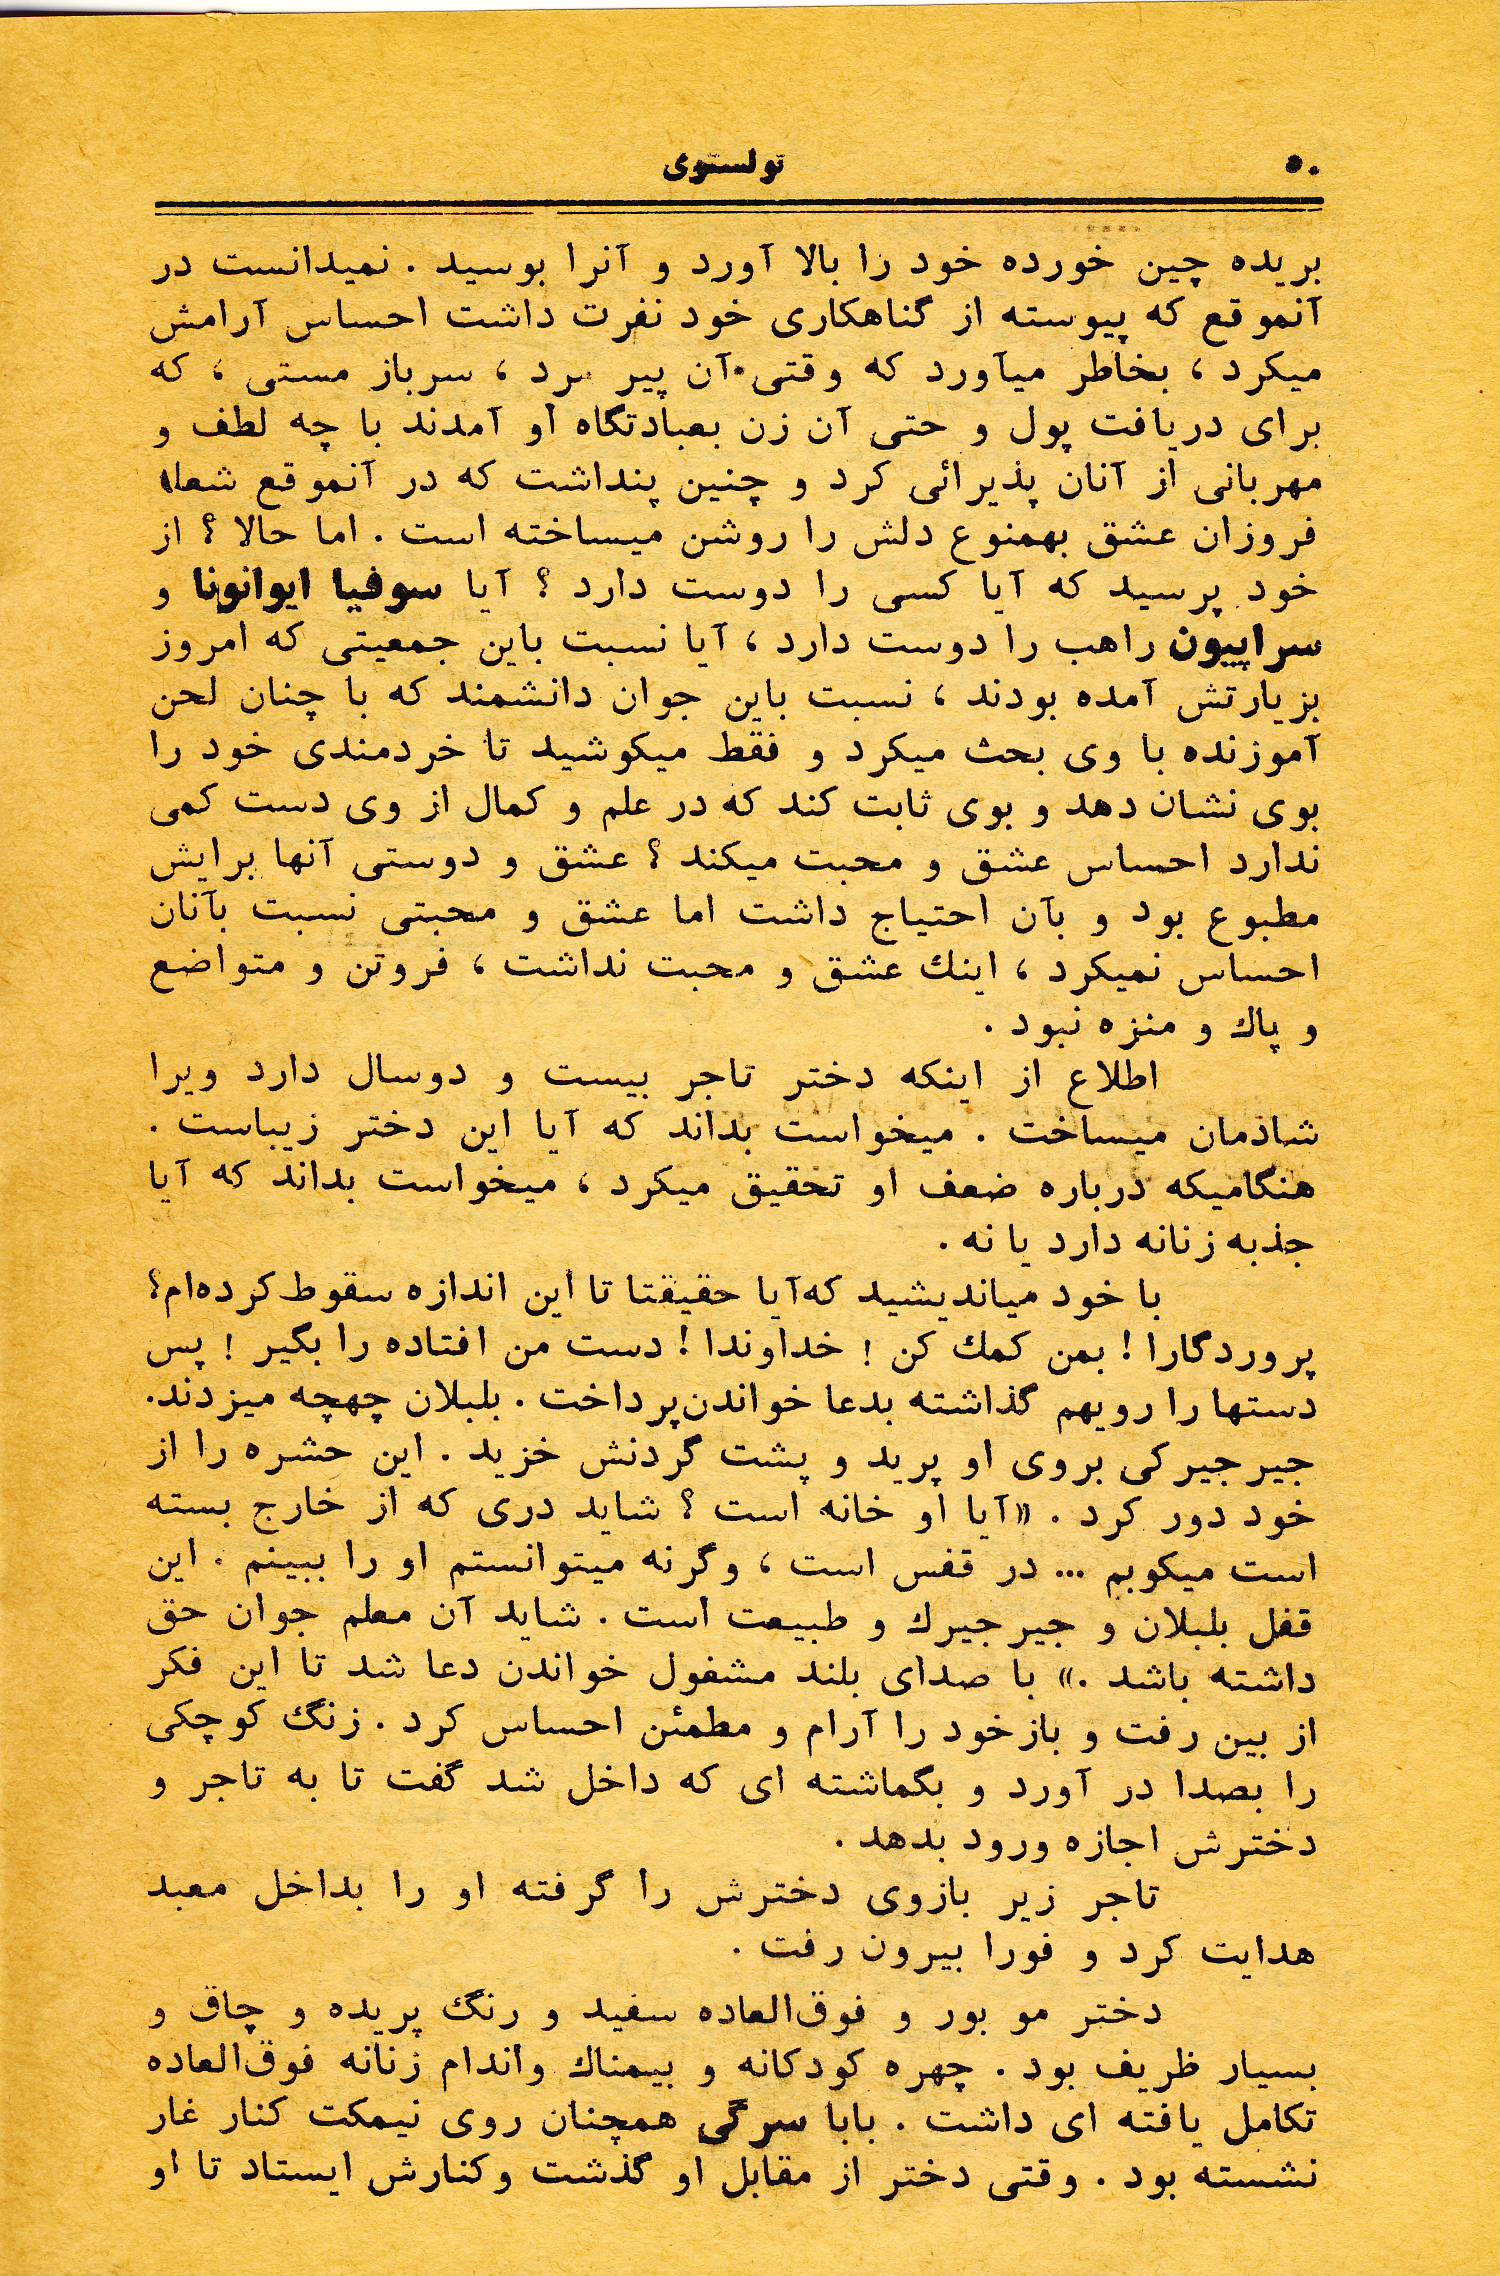 ۵۰
تولستوی
بریده چین خورده خود را بالا آورد و آنرا بوسید . نمیدانست در
آنموقع که پیوسته از گناهکاری خود نفرت داشت احساس آرامش
میکرد ، بخاطر میآورد که وقتی آن پیر مرد ، سرباز مستی ، که
برای دریافت پول و حتی آن زن بعبادتگاه او آمدند با چه لطف و
مهربانی از آنان پذیرائی کرد و چنین پنداشت که در آنموقع شعله
فروزان عشق بهمنوع دلش را روشن میساخته است . اما حالا ؟ از
خود پرسید که آیا کسی را دوست دارد ؟ آیا سوفیا ایوانونا و
سراپیون راهب را دوست دارد ، آیا نسبت باین جمعیتی که امروز
بزیارتش آمده بودند ، نسبت باین جوان دانشمند که با چنان لحن
آموزنده با وی بحث میکرد و فقط میکوشید تا خردمندی خود را
بوی نشان دهد و بوی ثابت کند که در علم و کمال از وی دست کمی
ندارد احساس عشق و محبت میکند ؟ عشق و دوستی آنها برایش
مطبوع بود و بآن احتیاج داشت اما عشق و محبتی نسبت بآنان
احساس نمیکرد ، اینك عشق و محبت نداشت ، فروتن و متواضع
و پاك و منزه نبود .
اطلاع از اینکه دختر تاجر بیست و دوسال دارد ویرا
شادمان میساخت . میخواست بداند که آیا این دختر زیباست .
هنگامیکه درباره ضعف او تحقیق میکرد ، میخواست بداند که آیا
جذبه زنانه دارد یا نه .
با خود میاندیشید که‌آیا حقیقتا تا این اندازه سقوط کرده‌ام؟
پروردگارا ! بمن کمك کن ! خداوندا ! دست من افتاده را بگیر ! پس
دستها را رویهم گذاشته بدعا خواندن پرداخت . بلبلان چهچه میزدند.
جیرجیرکی بروی او پرید و پشت گردنش خزید . این حشره را از
خود دور کرد . «آیا او خانه است ؟ شاید دری که از خارج بسته
است میکوبم ... در قفس است ، وگرنه میتوانستم او را ببینم . این
قفل بلبلان و جیرجیرك و طبیعت است . شاید آن معلم جوان حق
داشته باشد .» با صدای بلند مشغول خواندن دعا شد تا این فکر
از بین رفت و باز خود را آرام و مطمئن احساس کرد . زنگ کوچکی
را بصدا در آورد و بگماشته ای که داخل شد گفت تا به تاجر و
دخترش اجازه ورود بدهد .
تاجر زیر بازوی دخترش را گرفته او را بداخل معبد
هدایت کرد و فورا بیرون رفت .
دختر مو بور و فوق‌العاده سفید و رنگ پریده و چاق و
بسیار ظریف بود . چهره کودکانه و بیمناك واندام زنانه فوق‌العاده
تکامل یافته ای داشت . بابا سرگی همچنان روی نیمکت کنار غار
نشسته بود . وقتی دختر از مقابل او گذشت وکنارش ایستاد تا او